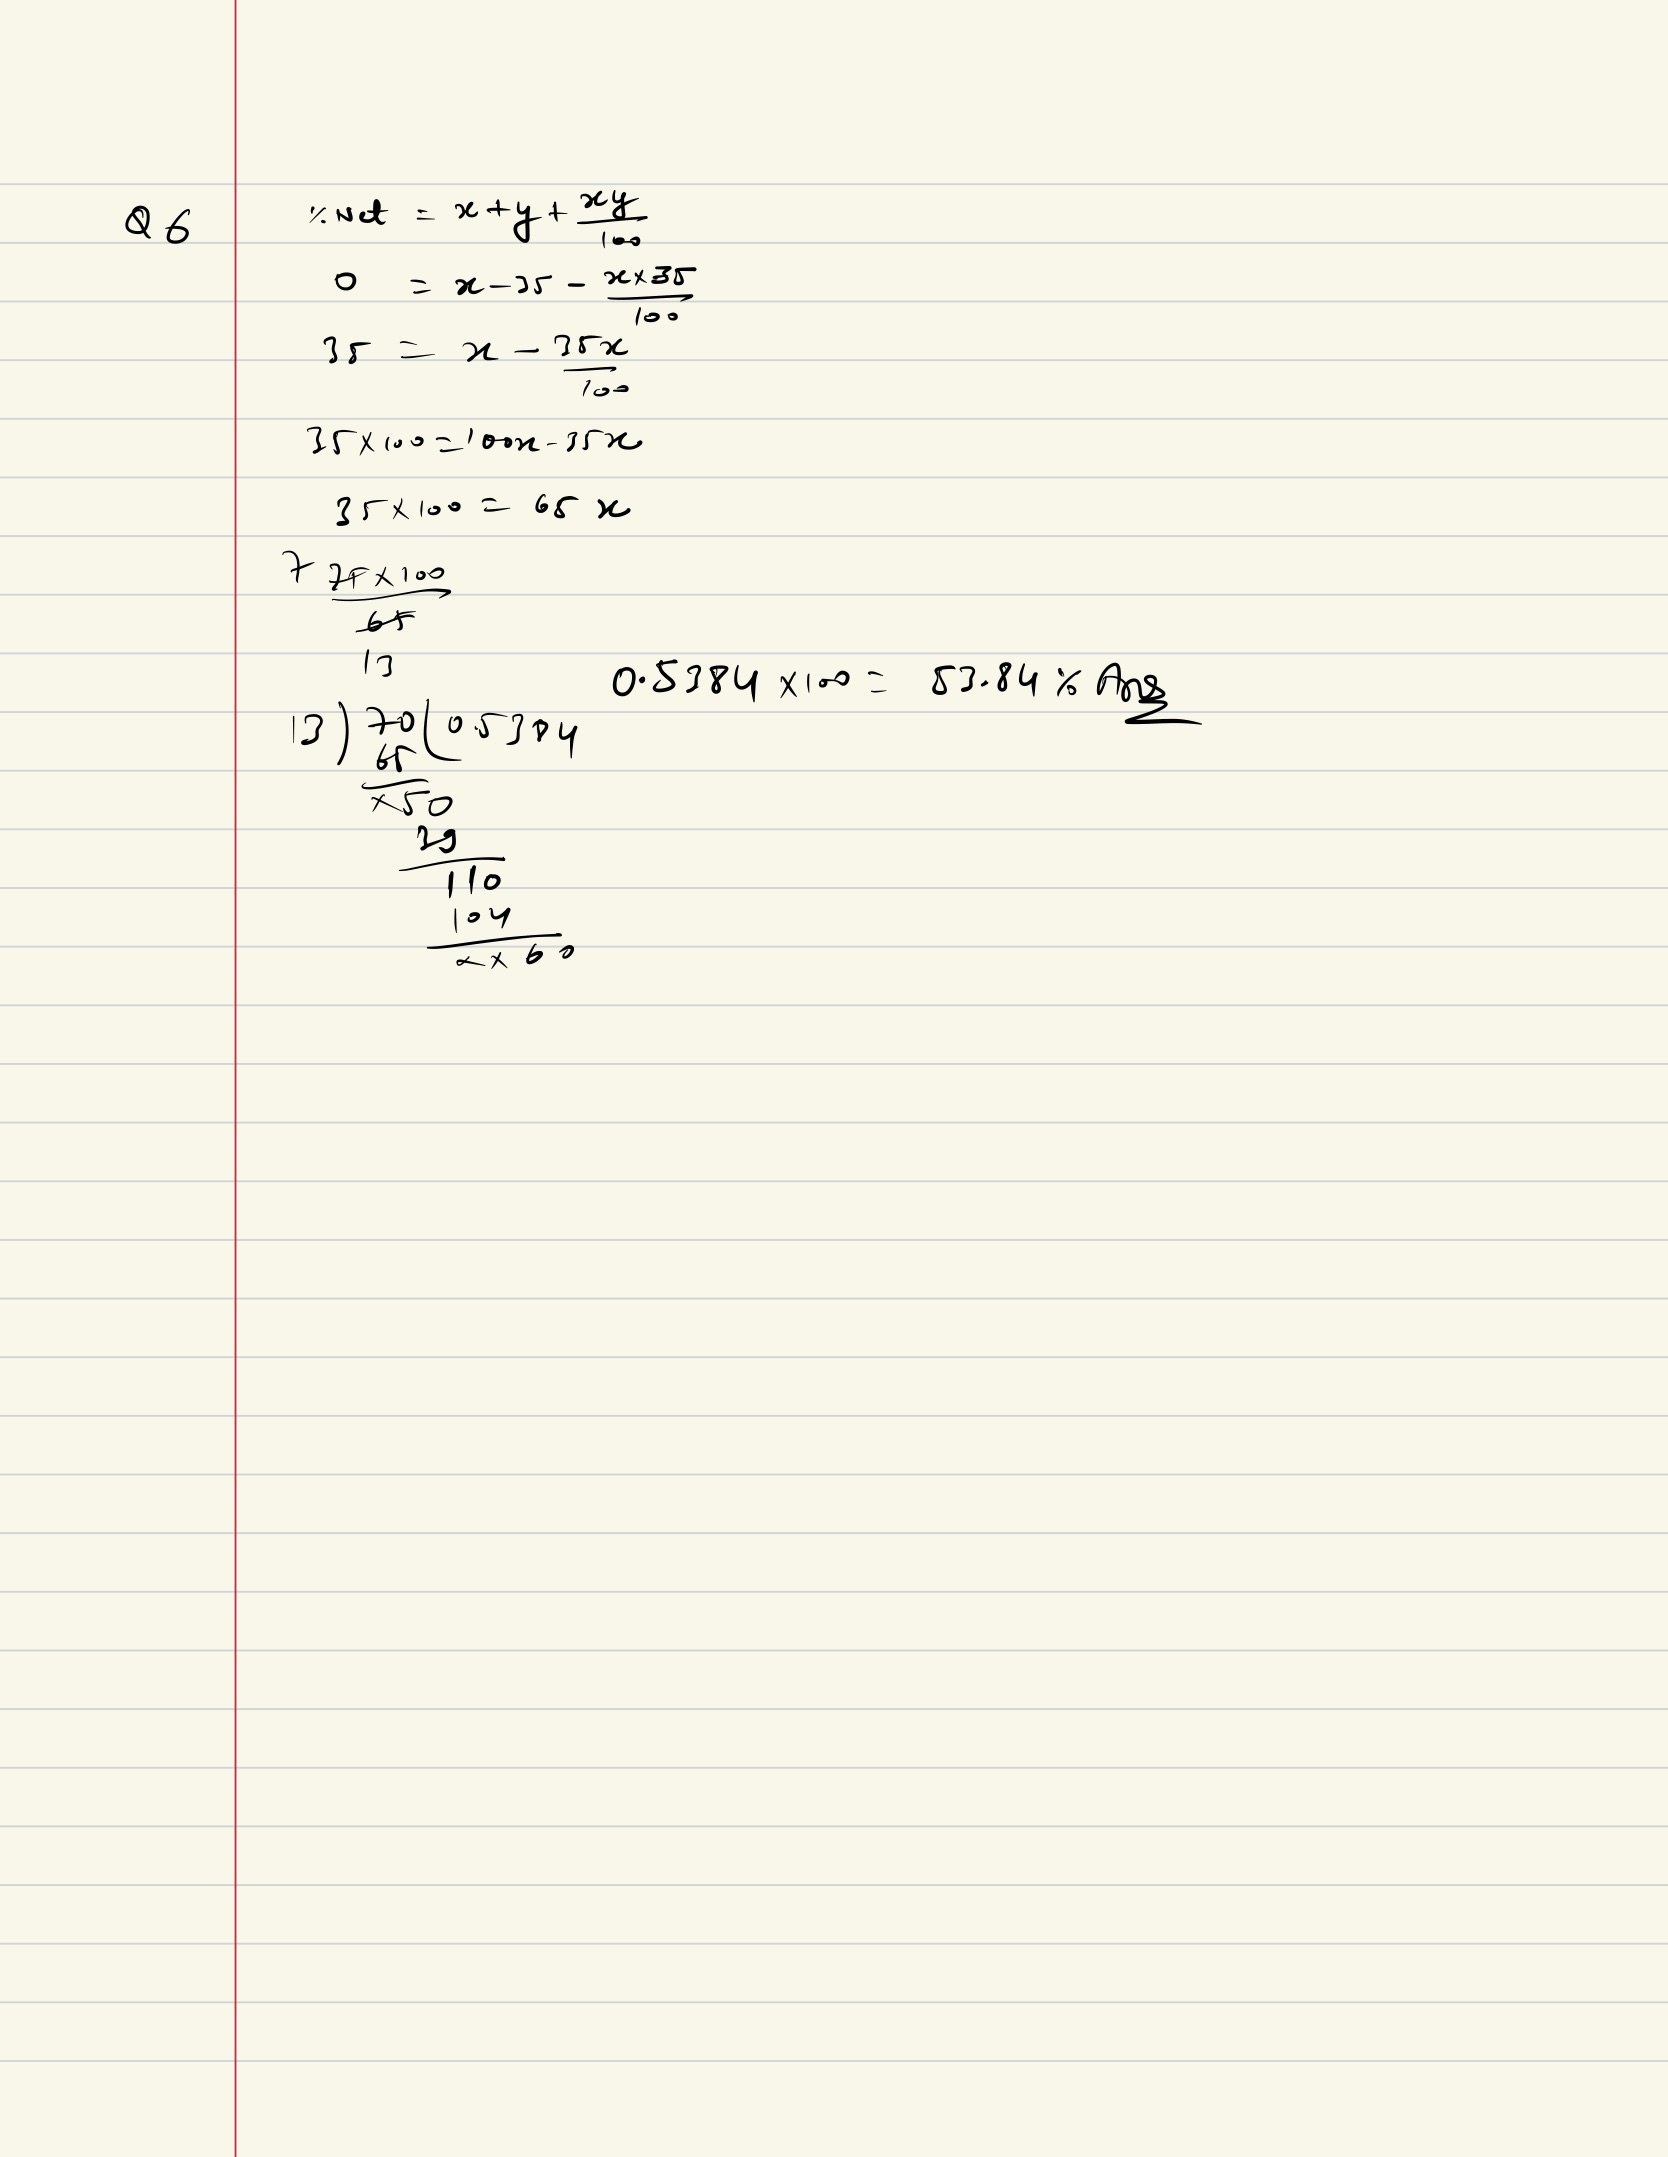 Q6
% Net = x + y + xy/100
0 = x - 35 - x×35/100
35 = x - 35x/100
35×100 = 100x - 35x
35×100 = 65x
7 35×100/65
13
0.5384 ×100 = 53.84 % Ans
13)70(0.5384
65
×50
39
110
104
××60